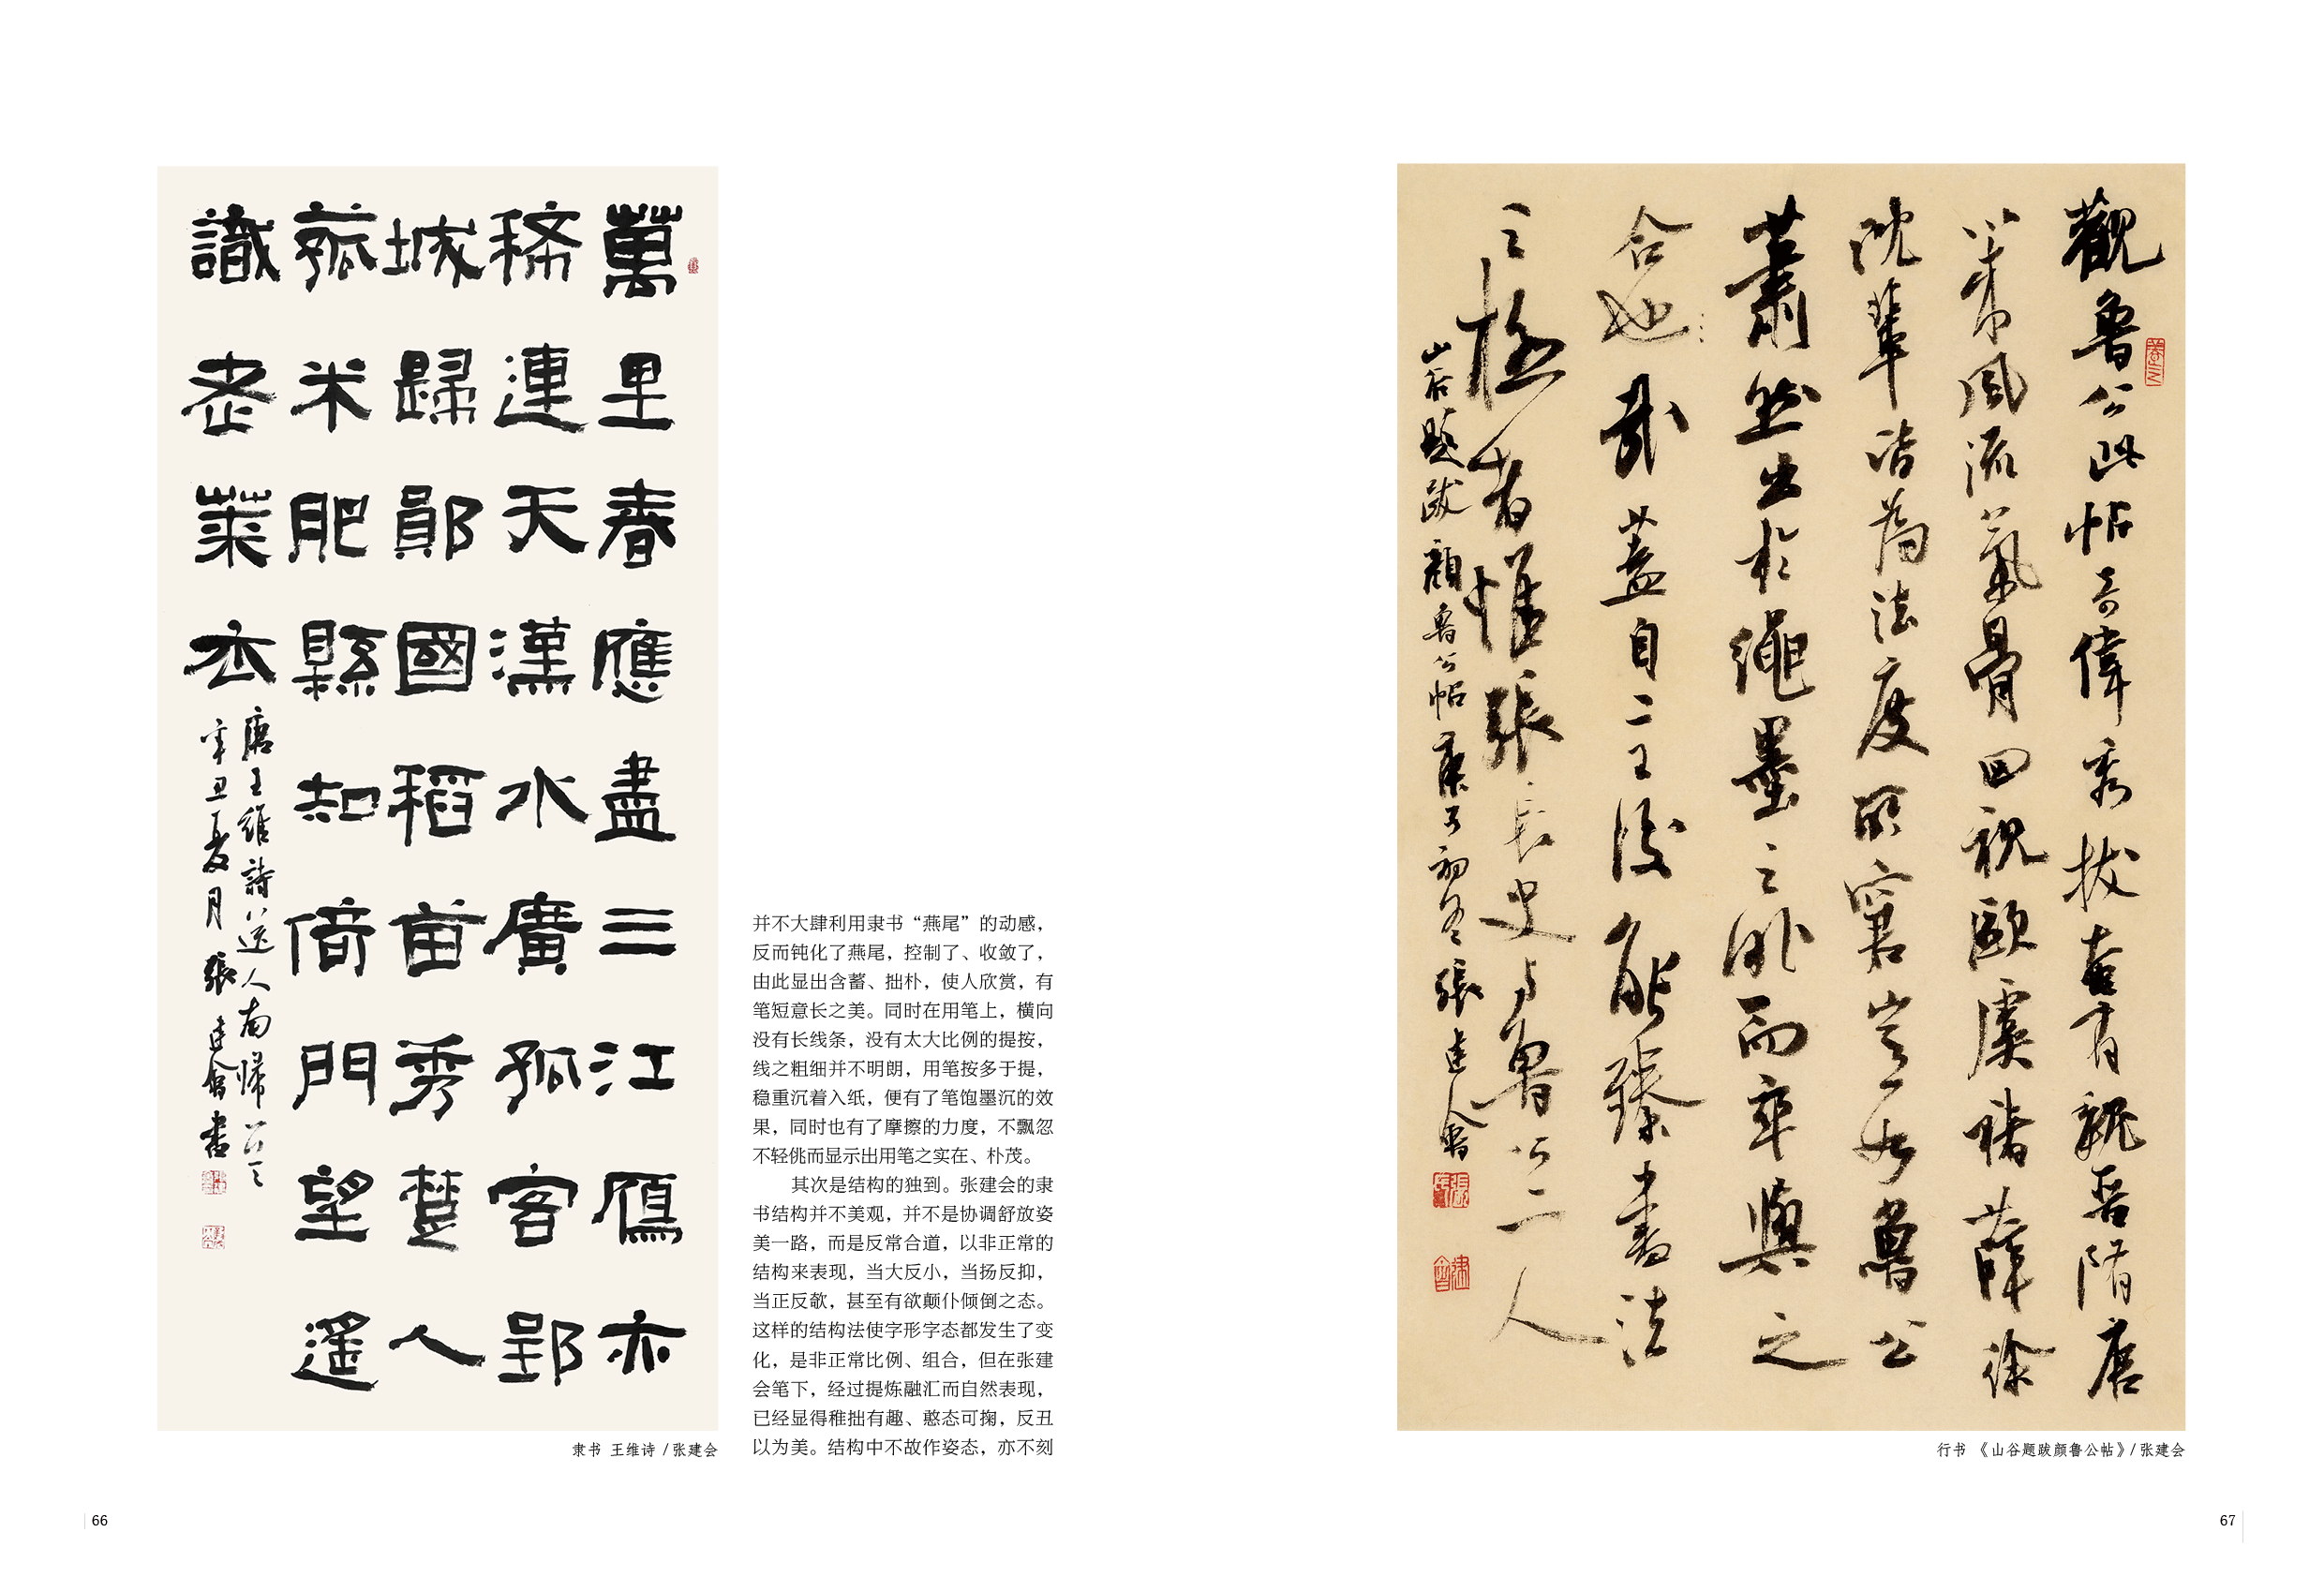 萬里春應盡三江鴈亦
稀連天漢水廣孤客郢
城歸鄖國稻苗秀楚人
菰米肥縣知倚門望遥
識老萊衣
唐王維詩送人南歸
辛丑夏月張建會書
隶书 王维诗 / 张建会
并不大肆利用隶书“燕尾”的动感，
反而钝化了燕尾，控制了、收敛了，
由此显出含蓄、拙朴，使人欣赏，有
笔短意长之美。同时在用笔上，横向
没有长线条，没有太大比例的提按，
线之粗细并不明朗，用笔按多于提，
稳重沉着入纸，便有了笔饱墨沉的效
果，同时也有了摩擦的力度，不飘忽
不轻佻而显示出用笔之实在、朴茂。
其次是结构的独到。张建会的隶
书结构并不美观，并不是协调舒放姿
美一路，而是反常合道，以非正常的
结构来表现，当大反小，当扬反抑，
当正反欹，甚至有欲颠仆倾倒之态。
这样的结构法使字形字态都发生了变
化，是非正常比例、组合，但在张建
会笔下，经过提炼融汇而自然表现，
已经显得稚拙有趣、憨态可掬，反丑
以为美。结构中不故作姿态，亦不刻
66
觀魯公此帖奇偉秀拔奄有魏晉隋唐
以來風流氣骨回視歐虞褚薛徐
沈輩皆為法度所窘豈如魯公
蕭然出於繩墨之外而卒與之
合也哉蓋自二王後能臻書法
之極者惟張長史與魯公二人
山谷題跋顏魯公帖庚子初冬張建會
行书 《山谷题跋颜鲁公帖》/ 张建会
67